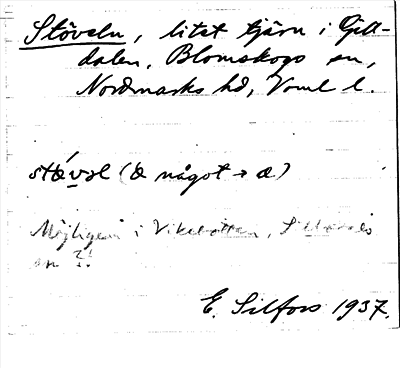 Stöveln, litet tjärn i Gill-
dalen, Blomskogs sn,
Nordmarks hd, Vrml l.
stǽvəl (æ något → a)
Möjligen i Vikebotten, Sillerud
sn ?!
E. Silfors 1937.